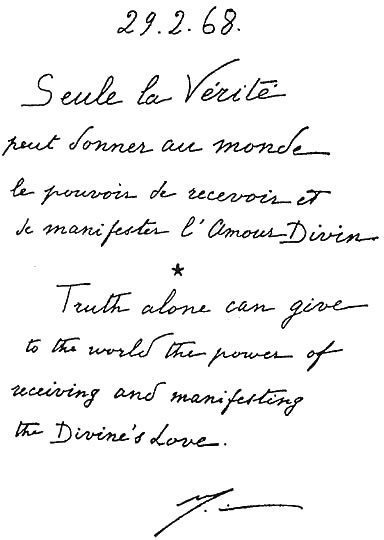 29.2.68.
Seule la Vérité
peut donner au monde
le pouvoir de recevoir et
de manifester l'Amour Divin
*
Truth alone can give
to the world the power of
receiving and manifesting
the Divine's Love.